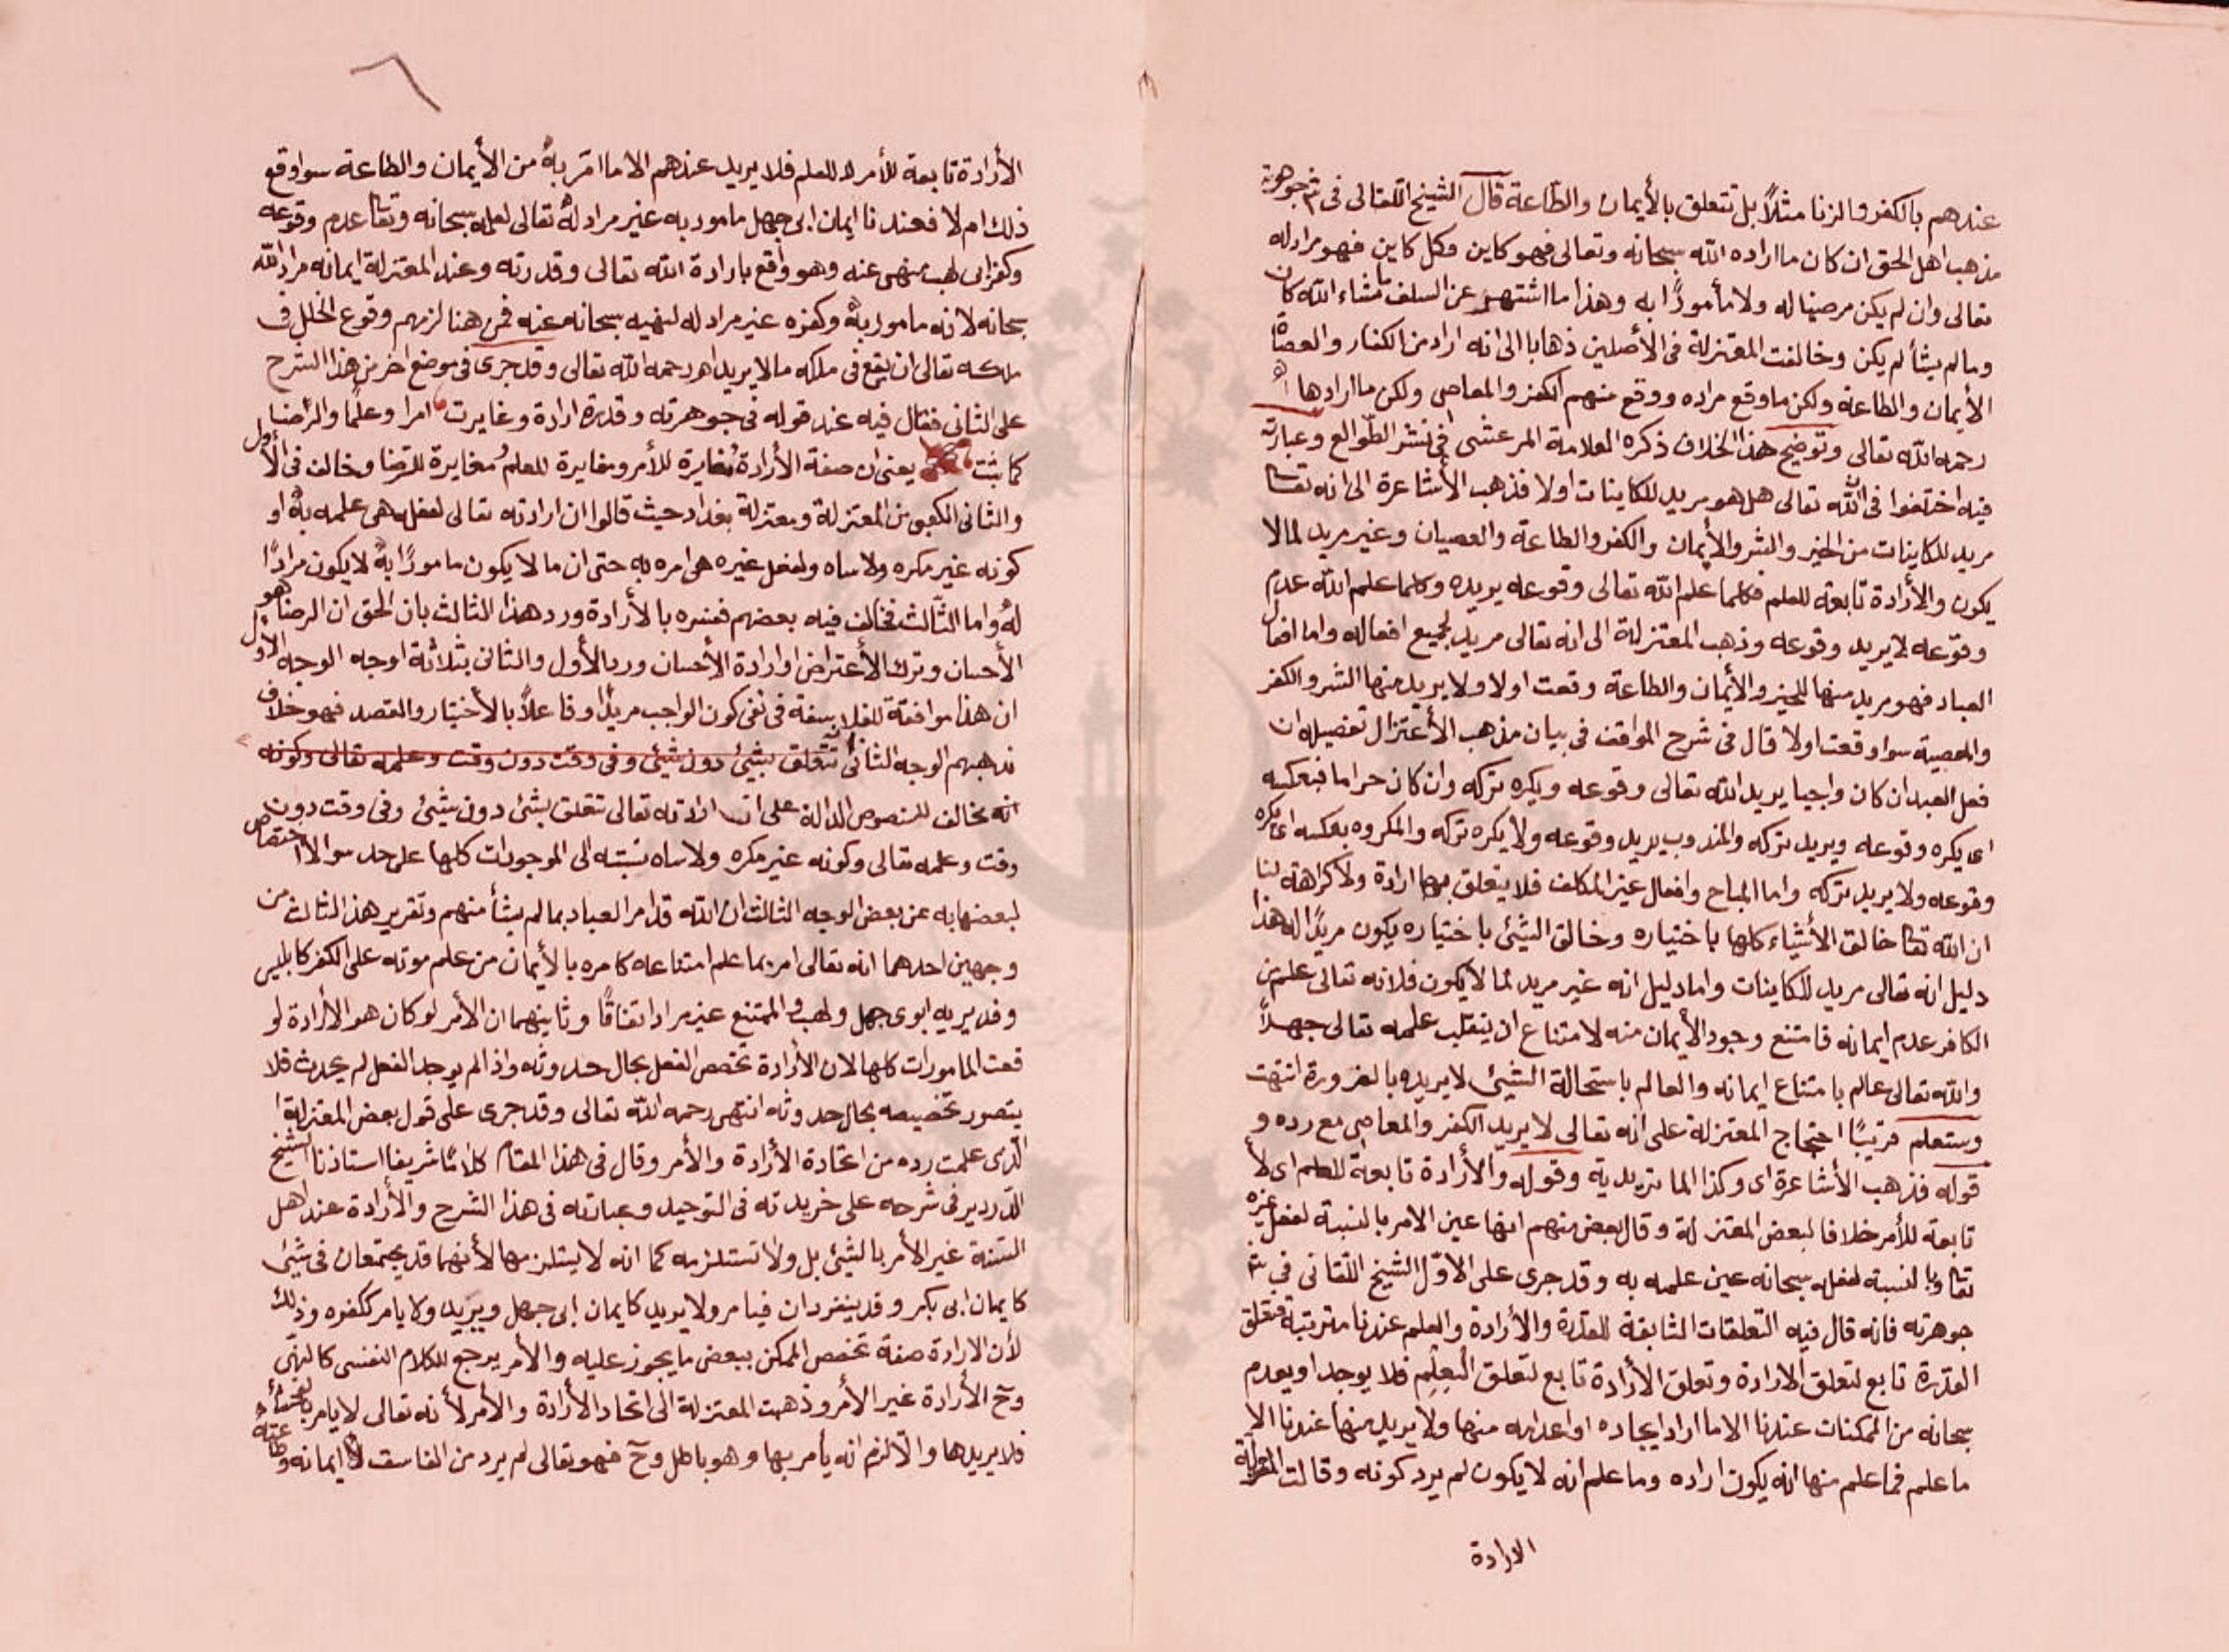 عندهم بالكفر والزنا مثلاً بل تتعلق بالأيمان والطاعة قال الشيخ اللقانى فى ش جوهرته
مذهب اهل الحق ان كان ما اراده الله سبحانه وتعالى فهو كاين وكل كاين فهو مراد له
تعالى وان لم يكن مرضيا له ولا مأمورًا به وهذا ما اشتهر عن السلف ما شاء الله كان
وما لم يشأ لم يكن وخالفت المعتزلة فى الأصلين ذهابا الى انه اراد من الكفار والعصاة
الأيمان والطاعة ولكن ما وقع مراده ووقع منهم الكفر والمعاصى ولكن ما ارادها اهـ
رحمه الله تعالى وتوضيح هذا الخلاف ذكره العلامة المرعشى فى نشر الطوالع وعبارته
فيه اختلفوا فى الله تعالى هل هو مريد للكاينات اولا فذهب الأشاعرة الى انه تعا
مريد للكاينات من الخير والشر والأيمان والكفر والطاعة والعصيان وغير مريد لما لا
يكون والأرادة تابعة للعلم فكلما علم الله تعالى وقوعه يريده وكلما علم الله عدم
وقوعه لا يريد وقوعه وذهب المعتزلة الى انه تعالى مريد لجميع افعاله واما افعال
العباد فهو مريد منها للخير والأيمان والطاعة وقعت اولا ولا يريد منها الشر والكفر
والمعصية سوا وقعت اولا قال فى شرح المواقف فى بيان مذهب الأعتزال تفصيله ان
فعل العبد ان كان واجبا يريد الله تعالى وقوعه ويكره تركه وان كان حراما فبعكسه
اى يكره وقوعه ويريد تركه والمندوب يريد وقوعه ولا يكره تركه والمكروه بعكسه اى يكره
وقوعه ولا يريد تركه واما المباح وافعال غير المكلف فلا يتعلق بها ارادة ولا كراهة لنا
ان الله تعا خالق الأشياء كلها باختياره وخالق الشيئ باختياره يكون مريدًا له هذا
دليل انه تعالى مريد للكاينات واما دليل انه غير مريد لما لا يكون فلانه تعالى علم من
الكافر عدم ايمانه فامتنع وجود الأيمان منه لامتناع ان ينقلب علمه تعالى جهلاً
والله تعالى عالم بامتناع ايمانه والعالم باستحالة الشيئ لا يريده بالضرورة انتهت
وستعلم قريبًا احتجاج المعتزلة على انه تعالى لا يريد الكفر والمعاصى مع رده و
قوله فذهب الأشاعرة اى وكذا الماتريدية وقوله والأرادة تابعة للعلم اى لا
تابعة للأمر خلافا لبعض المعتزلة وقال بعض منهم انها عين الامر بالنسبة لفعل غيره
تعا وبالنسبة لفعله سبحانه عين علمه به وقد جرى على الاول الشيخ اللقانى فى ش
جوهرته فانه قال فيه التعلقات الثابقة للقدرة والأرادة والعلم عندنا مترتبة فتعلق
القدرة تابع لتعلق الارادة وتعلق الأرادة تابع لتعلق العلم فلا يوجد او يعدم
سبحانه من الممكنات عندنا الا ما اراد ايجاده او اعدامه منها ولا يريد منها عندنا الا
ما علم فما علم منها انه يكون اراده وما علم انه لا يكون لم يرد كونه وقالت المعتزلة
الارادة
٦
الأرادة تابعة للأمر لا للعلم فلا يريد عندهم الا ما امر به من الأيمان والطاعة سوا وقع
ذلك ام لا فعندنا ايمان ابى جهل مامور به غير مراد له تعالى لعلمه سبحانه وتعا عدم وقوعه
وكفر ابى لهب منهى عنه وهو واقع بارادة الله تعالى وقدرته وعند المعتزلة ايمانه مراد لله
سبحانه لانه مامور به وكفره غير مراد له لنهيه سبحانه عنه فمن هنا لزمهم وقوع الخلل فى
ملكه تعالى ان يقع فى ملكه ما لا يريد اهـ رحمه الله تعالى وقد جرى فى موضع اخر من هذا الشرح
على الثانى فقال فيه عند قوله فى جوهرته وقدرة ارادة وغايرت امرا وعلما والرضا
كما ثبت يعنى ان صفة الأرادة مغايرة للأمر ومغايرة للعلم ومغايرة للرضا وخالف فى الأول
والثانى الكعبى من المعتزلة ومعتزلة بغداد حيث قالوا ان ارادته تعالى لفعله هى علمه به او
كونه غير مكره ولا ساه ولفعل غيره هى امره به حتى ان ما لا يكون مامورًا به لا يكون مرادًا
له واما الثالث فخالف فيه بعضهم ففسره بالأرادة ورد هذا الثالث بان الحق ان الرضا هو
الأحسان وترك الأعتراض او ارادة الأحسان ورد الأول والثانى بثلاثة اوجه الوجه الأول
ان هذا موافقة للفلاسفة فى نفى كون الواجب مريدًا وفاعلاً بالأختيار والقصد فهو خلاف
مذهبهم الوجه الثانى تتعلق بشيئ دون شيئ وفى وقت دون وقت وعلمه تعالى وكونه
انه مخالف للنصوص الدالة على ان ارادته تعالى تتعلق بشئ دون شيئ وفى وقت دون
وقت وعلمه تعالى وكونه غير مكره ولا ساه نسبته الى الموجودات كلها على حد سوا لا اختصاص
لبعضها به عن بعض الوجه الثالث ان الله قد امر العباد بما لم يشأ منهم وتقرير هذا الثالث من
وجهين احدهما انه تعالى امر بما علم امتناعه كامره بالأيمان من علم موته على الكفر كابليس
ابوى جهل ولهب والممتنع غير مراد اتفاقًا وثانيهما ان الأمر لو كان هو الأرادة لو
قعت المامورات كلها لان الأرادة تخصص الفعل بحال حدوثه واذا لم يوجد الفعل لم يحدث فلا
يتصور تخصيصه بحال حدوثه انتهى رحمه الله تعالى وقد جرى على قول بعض المعتزلة
الذى علمت رده من اتحادة الأرادة والأمر وقال فى هذا المقام كلامًا شريفا استاذنا الشيخ
الدردير فى شرحه على خريدته فى التوحيد وعبارته فى هذا الشرح والأرادة عند اهل
السنة غير الأمر بالشيئ بل ولا تستلزمه كما انه لا يستلزمها لأنهما قد يجتمعان فى شيئ
كايمان ابى بكر وقد ينفردان فيامر ولا يريد كايمان ابى جهل ويريد ولا يامر ككفره وذلك
لأن الارادة صفة تخصص الممكن ببعض ما يجوز عليه والأمر يرجع للكلام النفسى كالنهى
وح الأرادة غير الأمر وذهبت المعتزلة الى اتحاد الأرادة والأمر لأنه تعالى لا يامر بالفحشاء
فلا يريدها والا لزم انه يأمر بها وهو باطل وح فهو تعالى لم يرد من الفاسق الا ايمانه وطاعته